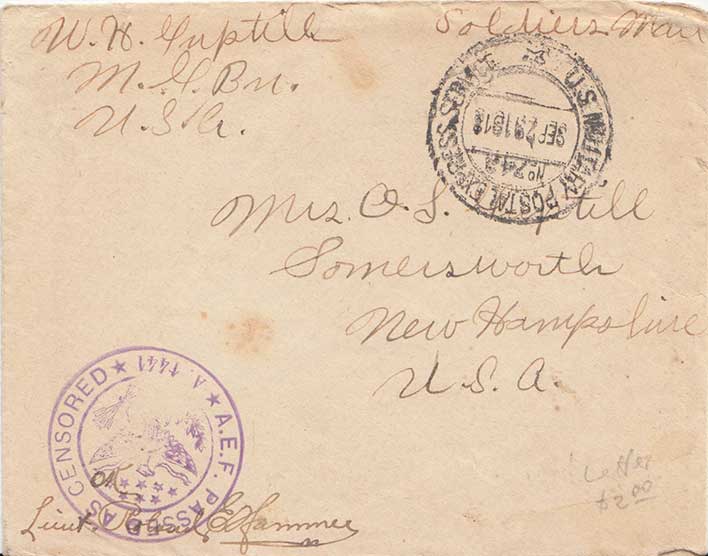 W. H. Guptill
Soldiers Mail
M. G. Bn.
U.S.A.
U.S. MILITARY POSTAL EXPRESS SERVICE
SEP 29 1918
No 742
Mrs. O. S. Guptill
Somersworth
New Hampshire
U.S.A.
A.E.F. PASSED AS CENSORED
A. 4441
OK
Lieut. Roland E.
Letter
$2.00